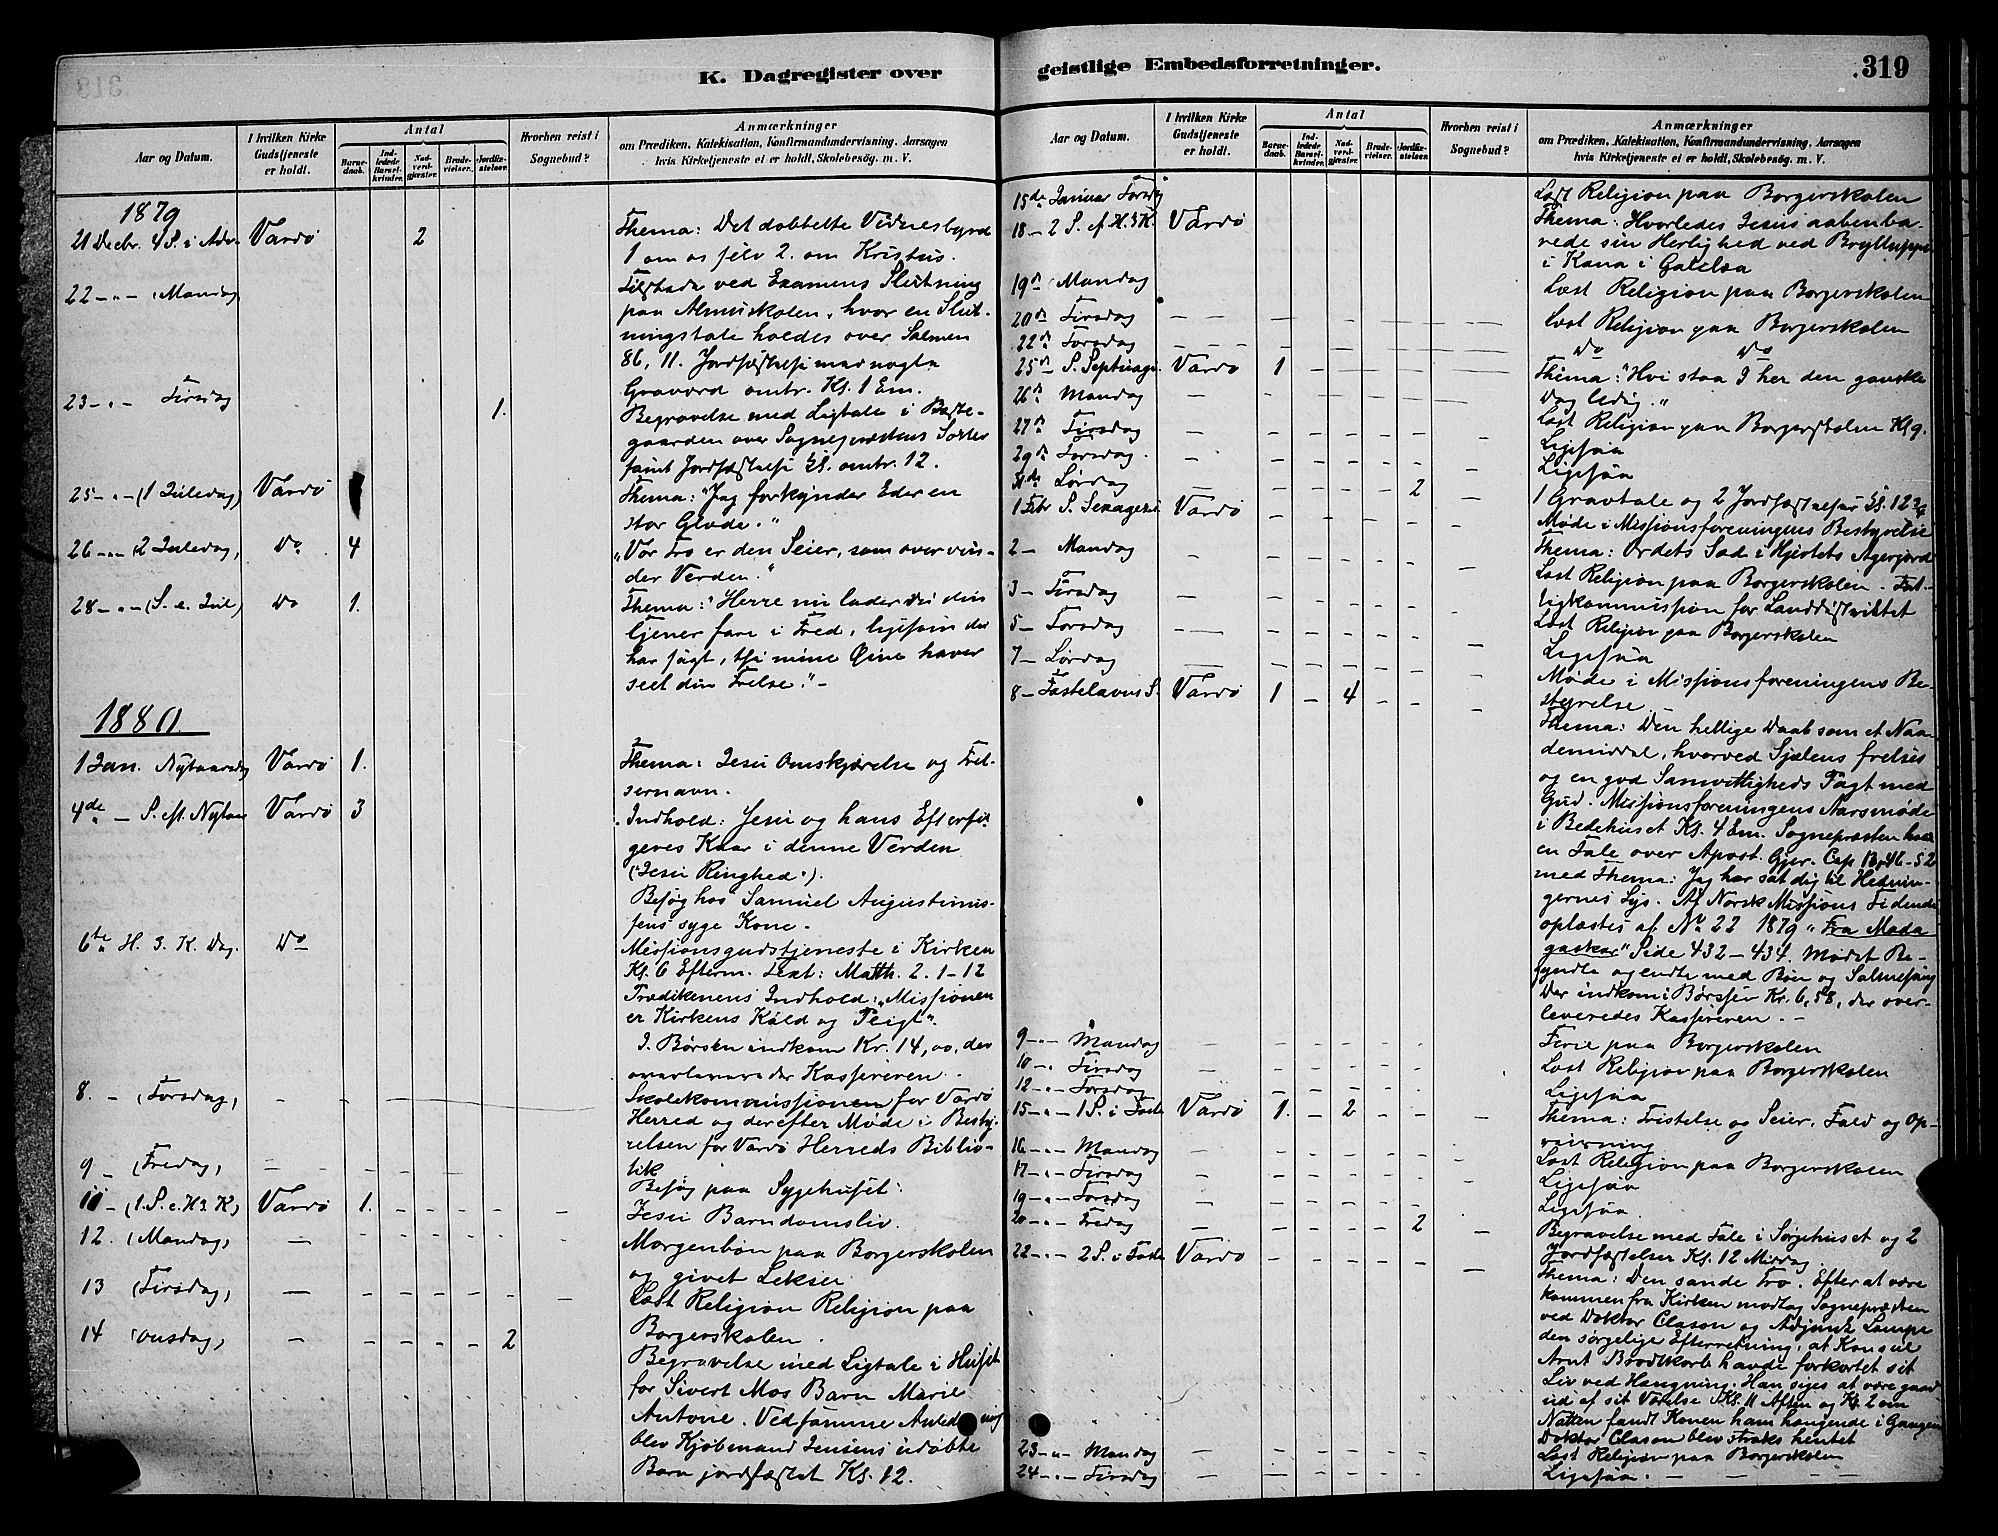 K. Dagregister over
Aar og Datum.
I hvilken Kirke Gudstjeneste er holdt.
Antal
Barnedaab.
Indledede Barselkvinder.
Nadverdgjæster.
Brudevielser.
Jordfæstelser.
Hvorhen reist i Sognebud?
Anmærkninger
om Prædiken, Katekisation, Konfirmandundervisning, Aarsagen
hvis Kirketjeneste ei er holdt, Skolebesøg. m. V.
1879
21 Decbr. 4 S. i Adv. Vardø 2 Thema: Det dobbelte Vidnesbyrd
1 om os selv 2. om Kristus.
22 - " - (Mandag Tilstede ved Examens Slutning
paa Almuskolen, hvor en Slut-
ningstale holdes over Salmen
86, 11. Jordfæstelse med nogle
Gravord omtr. Kl. 1 Em.
23 - " - Tirsdag 1. Begravelse med Ligtale i
gaarden over Sognepræstens
samt Jordfæstelse Kl. omtr. 12.
25 - " - (1 Juledag) Vardø Thema: "Jeg forkynder Eder en
stor Glæde."
26 - " - (2 Juledag, Do 4 "Vor Tro er den Seier, som overvin-
der Verden."
28 - " - (S. e. Jul) Do 1. Thema: "Herre nu lader du din
tjener fare i Fred, ligesom du
har sagt, thi mine Øine haver
seet din Frelse." -
1880
1 Jan. Nytaarsdag Vardø 1. Thema: Jesu Omskjærelse og Frel-
sernavn.
4de - S. eft. Nytaar Vardø 3 Indhold: Jesu og hans Efterføl-
geres Kaar i denne Verden
(Jesu Ringhed.).
Besøg hos Samuel Augustinus-
sens syge Kone.
6te " H. 3. K. Dag. Do Missionsgudstjeneste i Kirken
Kl. 6 Efterm. Text: Matth. 2. 1-12
Prædikenens Indhold: "Missionen
er Kirkens Kald og Pligt".
I Børsen indkom Kr. 14,00, der
overleveredes Kassereren.
8. - (Torsdag, Skolekommissionen for Vardø
Herred og derefter Møde i Besty-
relsen for Vardø Herreds Biblio-
tek
9 - (Fredag, Besøg paa Sygehuset.
11 - (1. S. e. H3K) Vardø 1. Jesu Barndomsliv.
12. (Mandag, Morgenbøn paa Borgerskolen
og givet Lekser.
13 (Tirsdag, Læst Religion Religion paa
Borgerskolen.
14 (onsdag, 2 Begravelse med Ligtale i Huset
for Sivert Mos Barn Marie
Antonie. Ved samme Anledning
blev Kjøbmand Jensens udøbte
Barn jordfæstet Kl. 12.
geistlige Embedsforretninger.
319
Aar og Datum.
I hvilken Kirke Gudstjeneste er holdt.
Antal
Barnedaab.
Indledede Barselkvinder.
Nadverdgjæster.
Brudevielser.
Jordfæstelser.
Hvorhen reist i Sognebud?
Anmærkninger
om Prædiken, Katekisation, Konfirmandundervisning, Aarsagen
hvis Kirketjeneste ei er holdt, Skolebesøg. m. V.
15de Januar Torsdag Læst Religion paa Borgerskolen
18 - 2 S. ef H.3K. Vardø Thema: Hvorledes Jesus aabenba-
rede sin Herlighed ved Bryllupet
i Kana i Galilæa
19de Mandag Læst Religion paa Borgerskolen
20de Tirsdag Læst Religion paa Borgerskolen
22de Torsdag Do Do
25de S. Septuages. Vardø 1 Thema: "Hvi staa I her den ganske
Dag ledig."
26de Mandag Læst Religion paa Borgerskolen Kl 9.
27de Tirsdag Ligesaa
29de Torsdag. Ligesaa
31de Lørdag 2 1 Gravtale og 2 Jordfæstelser Kl. 12
Møde i Missionsforeningens Bestyrelse
1 Febr S. Sexages. Vardø Thema: Ordets Sæd i Hjertets Agerjord
2 - Mandag Læst Religion paa Borgerskolen. Fat-
tigkommission for Landdistriktet
3 - Tirsdag Læst Religion paa Borgerskolen
5 - Torsdag Ligesaa
7 - Lørdag Møde i Missionsforeningens Be-
styrelse
8 - Fastelavns S. Vardø 1 4 Thema: Den hellige Daab som et Naa-
demiddel, hvorved Sjælens frelses
og en god Samvittigheds Pagt med
Gud. Missionsforeningens Aarsmøde
i Bedehuset Kl. 4 Em. Sognepræsten holdt
en Tale over Apost. Gjer. Cap 13, 46-52
med Thema: Jeg har sat dig til Hednin-
gernes Lys. Af Norsk Missions Tidende
oplæstes af No 22 1879 "Fra Mada-
gaskar" Side 432 - 434. Mødet Be-
gyndte og endte med Bøn og Salmesang
Der indkom i Børsen Kr. 6,58, der over-
leveredes Kassereren. -
9 - " - Mandag Ferie paa Borgerskolen
10 - " Tirsdag Læst Religion paa Borgerskolen
12 - " Torsdag Ligesaa
15 - " - 1 S. i Faste Vardø 1. 2 Thema: Fristelse og Seier. Fald og Op-
reisning
16 - " Mandag Læst Religion paa Borgerskolen
17 - " Tirsdag Ligesaa
19 - " Torsdag Ligesaa.
20 - " Fredag 2 Begravelse med Tale i Sørgehuset og 2
Jordfæstelser Kl. 12 Middag.
22 - " - 2 S. i Faste Vardø Thema: Den sande Tro. Efter at være
kommen fra Kirken modtog Sognepræsten
ved Doktor Clason og Adjunkt Lampe
den sørgelige Efterretning, at Konsul
Arnt Brodtkorb havde forkortet sit
Liv ved Hængning. Han siges at være gaaet
ud af sit Værelse Kl. 11 Aften og Kl. 2 om
Natten fandt Konen ham hængende i Gangen
Doktor Clason blev straks hentet
23 - " - Mandag Læst Religion paa Borgerskolen
24 - " - Tirsdag Ligesaa.